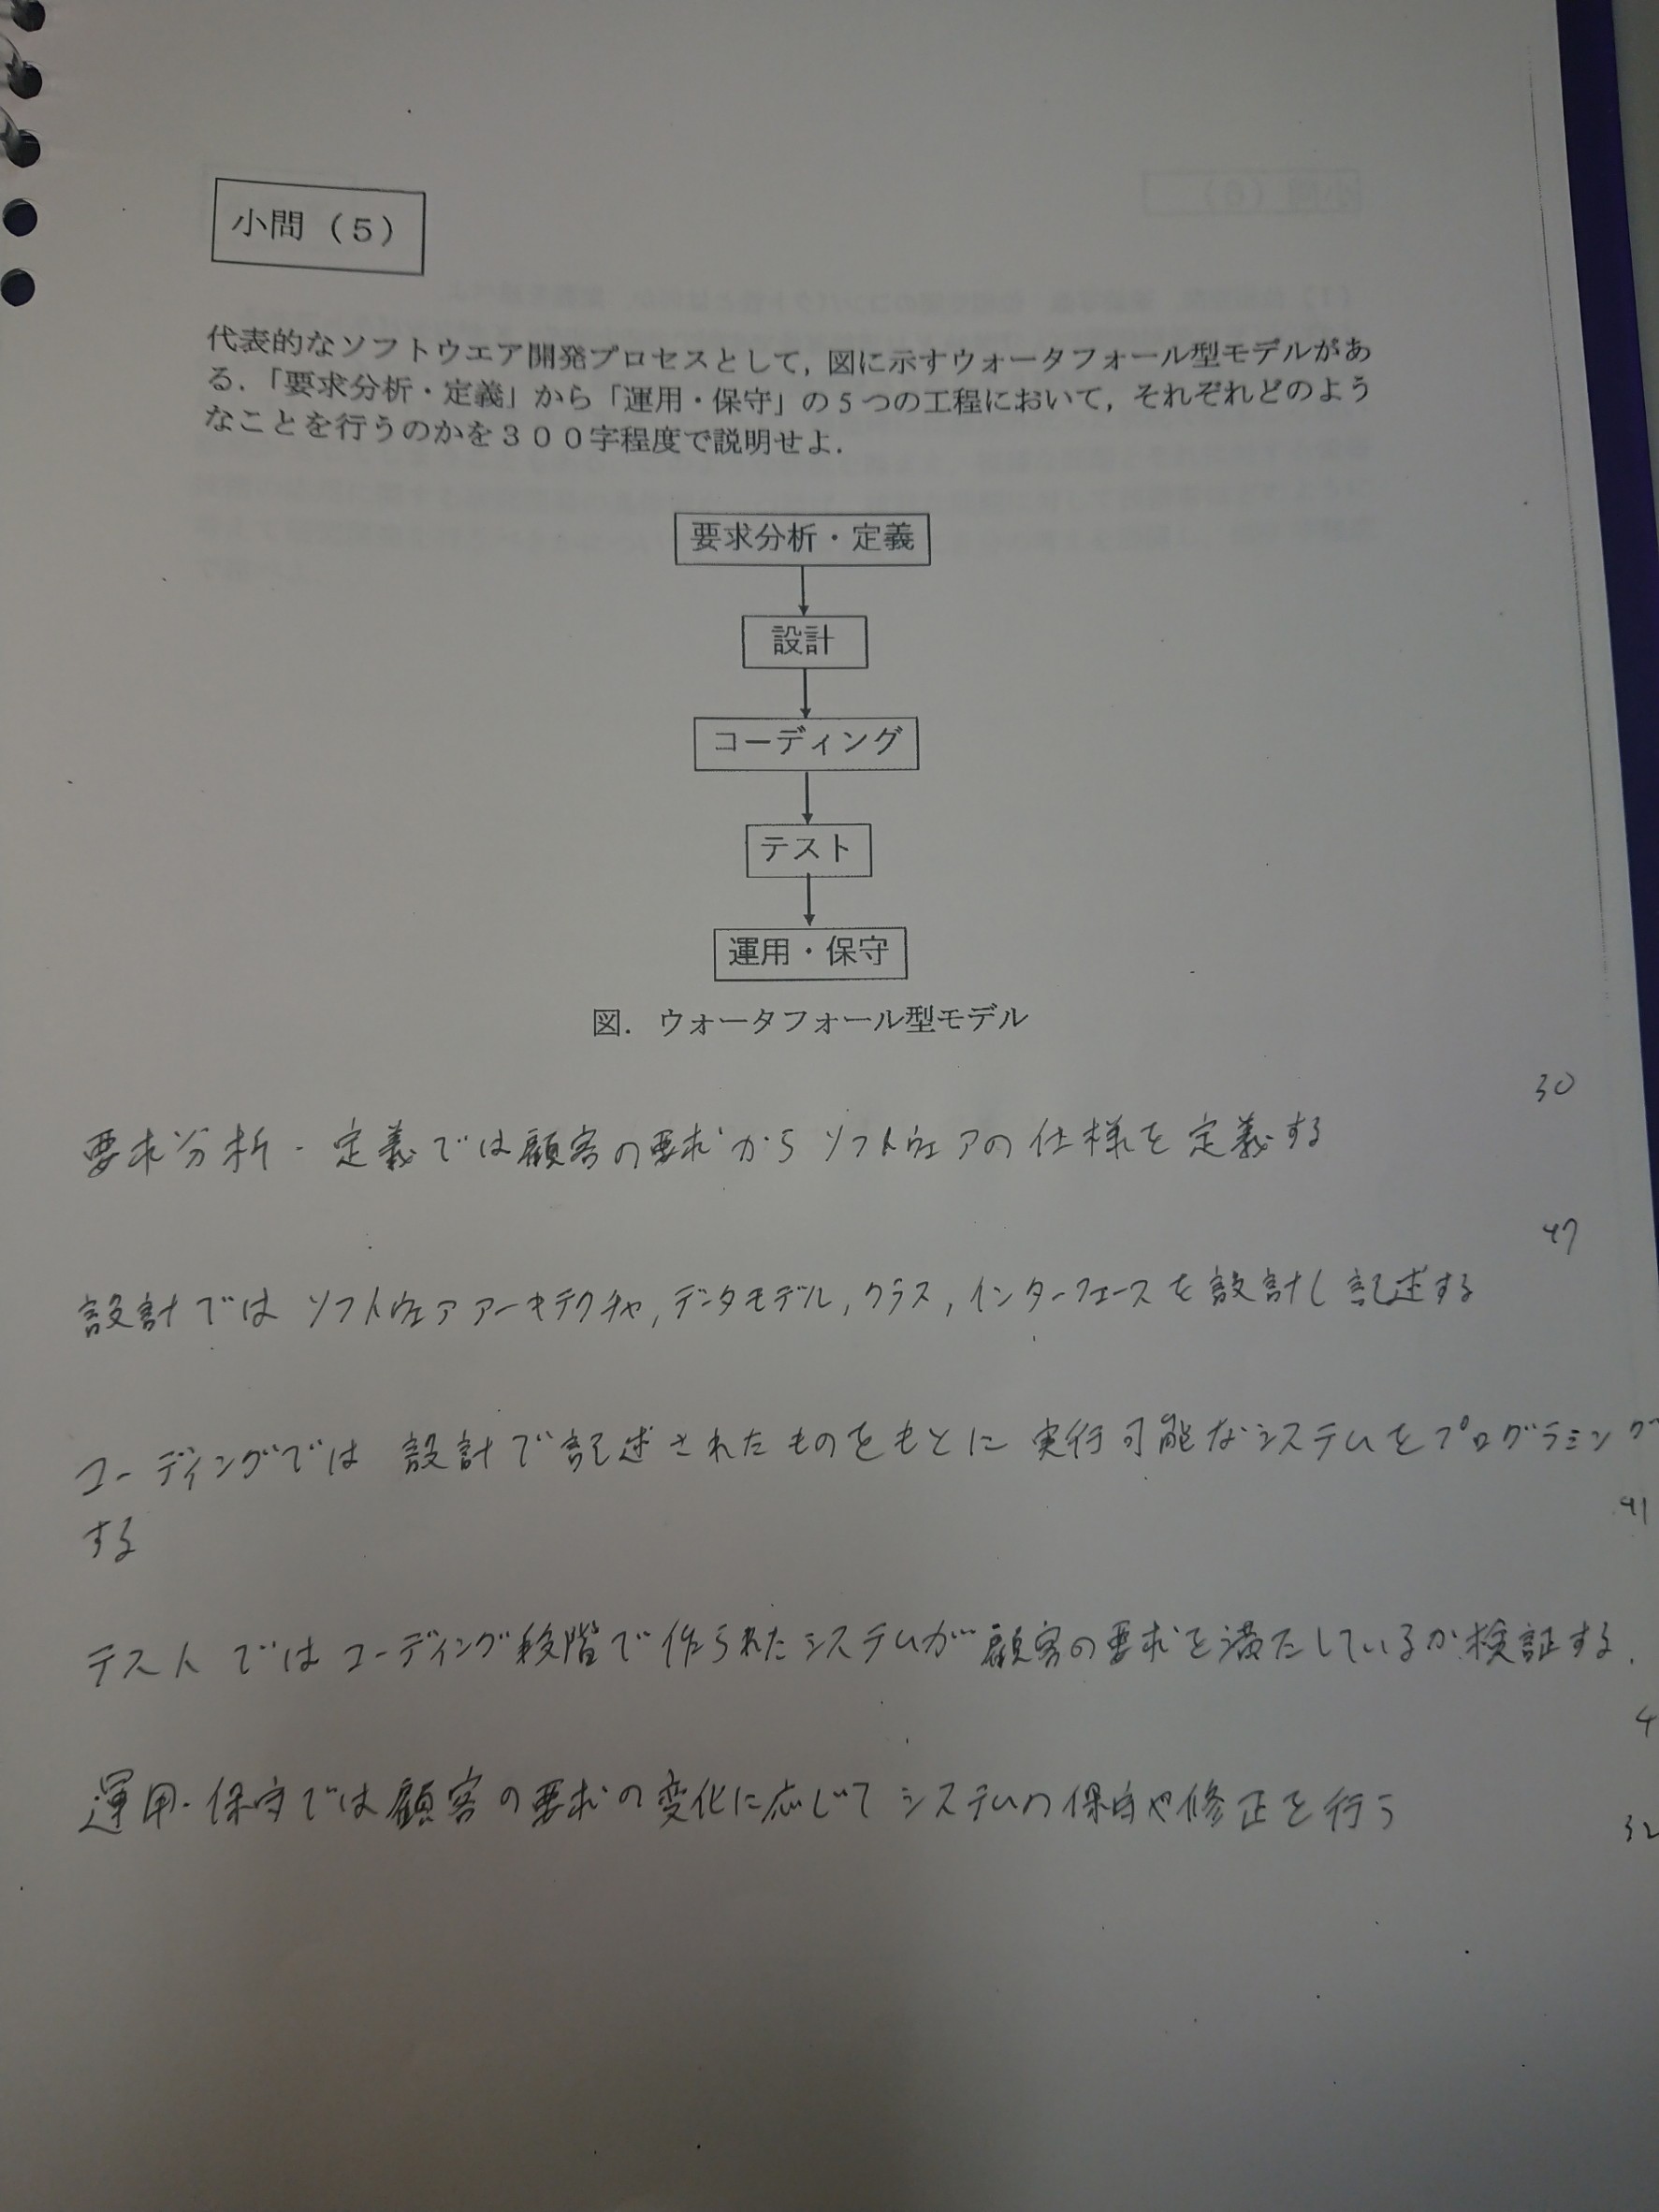 小問（５）
代表的なソフトウエア開発プロセスとして，図に示すウォータフォール型モデルがあ
る．「要求分析・定義」から「運用・保守」の５つの工程において，それぞれどのよう
なことを行うのかを３００字程度で説明せよ．
要求分析・定義
設計
コーディング
テスト
運用・保守
図．ウォータフォール型モデル
30
要求分析・定義では顧客の要求からソフトウェアの仕様を定義する
47
設計ではソフトウェアアーキテクチャ,データモデル,クラス,インターフェースを設計し記述する
コーディングでは設計で記述されたものをもとに実行可能なシステムをプログラミング
する
41
テストではコーディング段階で作られたシステムが顧客の要求を満たしているか検証する.
4
運用・保守では顧客の要求の変化に応じてシステムの保守や修正を行う
32